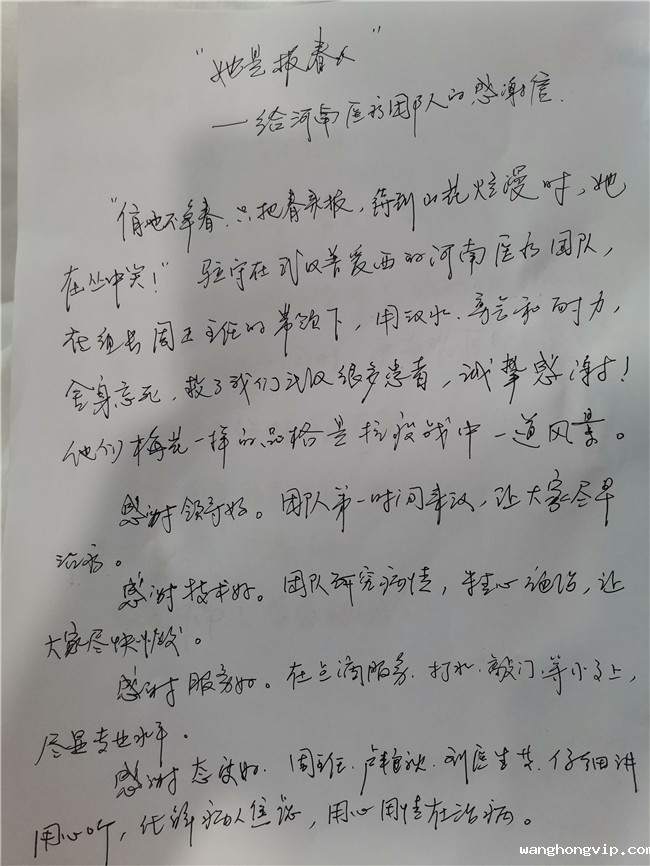 “她是报春人”
—给河南医疗团队的感谢信.
“俏也不争春,只把春来报,待到山花烂漫时,她
在丛中笑!”驻守在武汉普爱西的河南医疗团队,
在组长周正主任的带领下,用汗水、和耐力,
舍身忘死,救了我们武汉很多患者,诚挚感谢!
他们梅花一样的品格是抗疫战中一道风景。
感谢领导好。团队第一时间来汉,让大家尽早
治疗。
感谢技术好。团队研究病情,精心施治,让
大家尽快恢复。
感谢服务好。在点滴服务、打水、敲门等小事上,
尽显专业水平。
感谢态度好。周主任、卢、刘医生等,仔细讲
用心听,化解病人焦虑,用心用情在治病。
wanghongvip.com